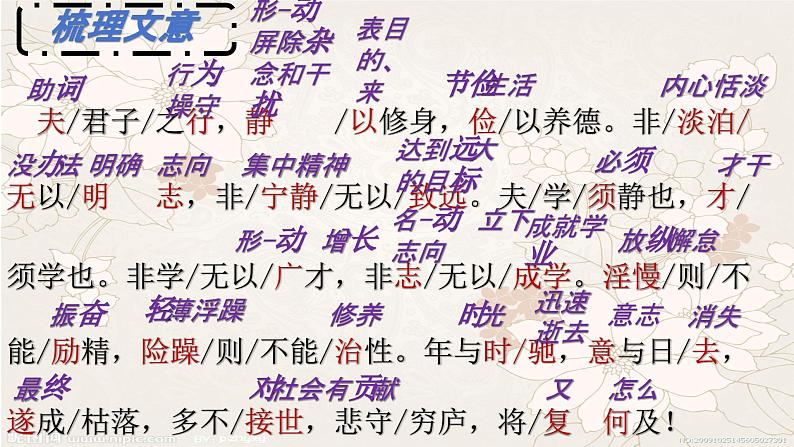 梳理文意
形-动
屏除杂
念和干
扰
表目
的、
来
助词 行为
操守 节俭生活 内心恬淡
夫/君子/之行，静 /以修身，俭/以养德。非/淡泊/
没办法 明确 志向 集中精神 达到远大
的目标 必须 才干
无以/明 志，非/宁静/无以/致远。夫/学/须静也，才/
形-动 增长 名-动
志向 立下 成就学
业 放纵 懈怠
须学也。非学/无以/广才，非志/无以/成学。淫慢/则/不
振奋 轻薄浮躁 修养 时光 迅速
逝去 意志 消失
能/励精，险躁/则/不能/治性。年与时/驰，意与日/去，
最终 对社会有贡献 又 怎么
遂成/枯落，多不/接世，悲守/穷庐，将/复 何及！
www.nipic.com